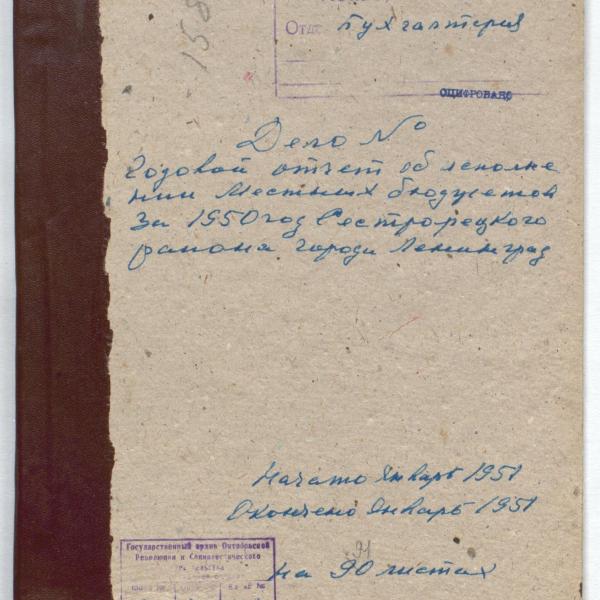 158
Отд. Бухгалтерия
ОЦИФРОВАНО
Дело №
Годовой отчет об исполне
нии местных бюджетов
за 1950 год Сестрорецкого
района города Ленинград
Начато Январь 1951
Окончено Январь 1951
91
на 90 листах
Государственный архив Октябрьской
Революции и Социалистического